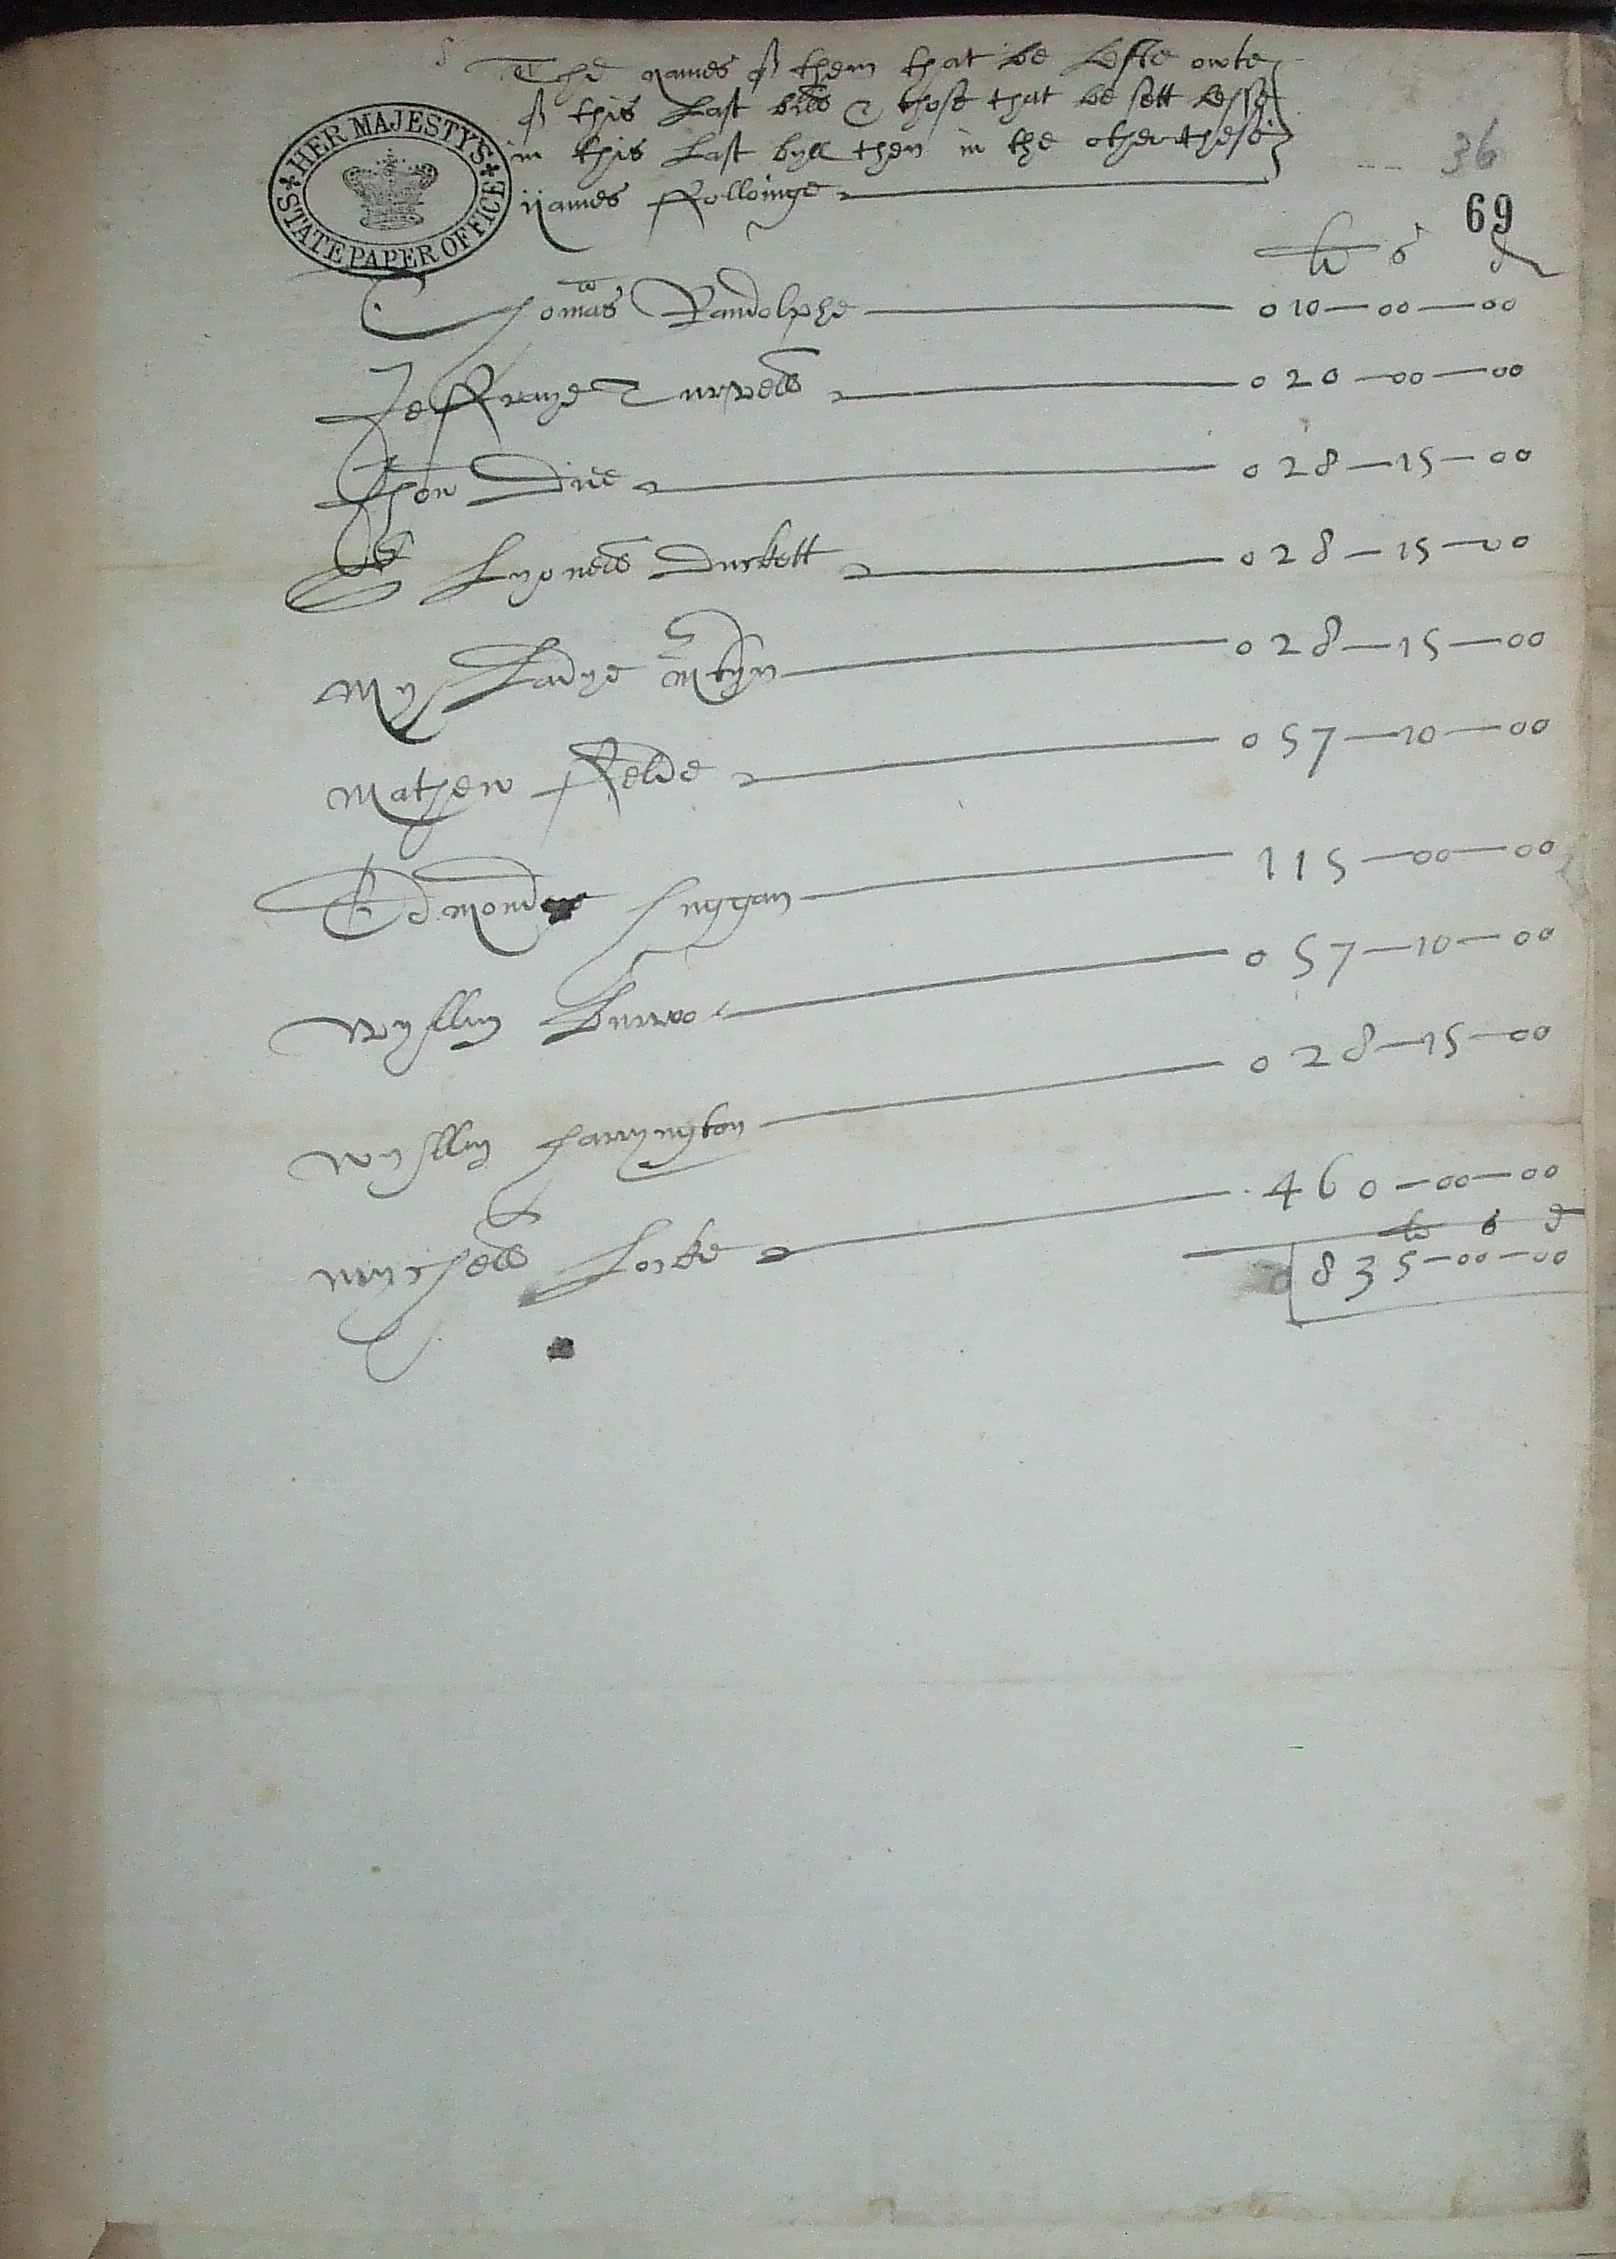 The names of them that be Lefte owte
of this Last bill & those that be sett Lesse
in this Last byll then in the other these
names ffolloinge
HER MAJESTY'S
STATE PAPER OFFICE
36
69
li s d
Thomas Randolphe 010—00—00
Jeffraye Turvell 020—00—00
Jhon Dee 028—15—00
Sr Lyonell Duckett 028—15—00
My Ladye 028—15—00
Mathew ffelde 057—10—00
Edmonde Huggan 115—00—00
Wyllm Burro 057—10—00
Wyllm Harryngton 028—15—00
Mychell Locke 460—00—00
li s d
835—00—00